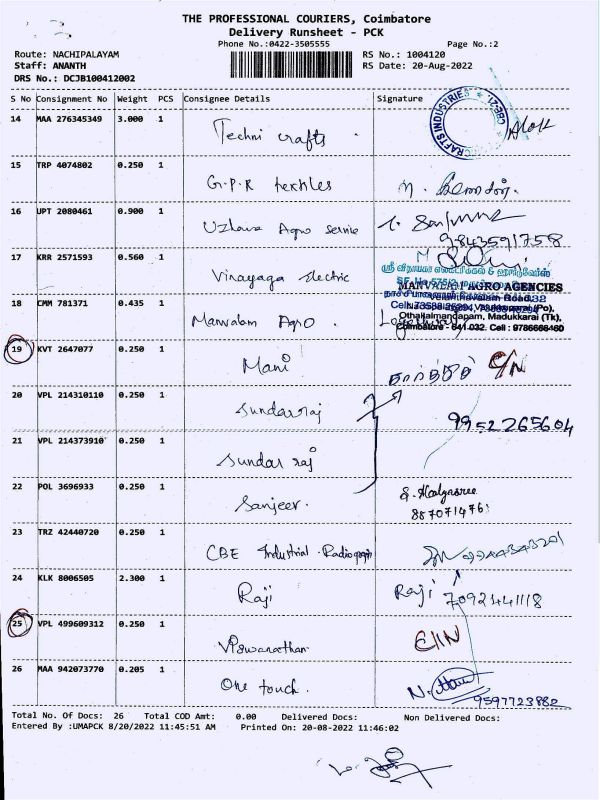 THE PROFESSIONAL COURIERS, Coimbatore
Delivery Runsheet - PCK
Phone No.:0422-3505555 Page No.:2
Route: NACHIPALAYAM RS No.: 1004120
Staff: ANANTH RS Date: 20-Aug-2022
DRS No.: DCJB100412002
S No Consignment No Weight PCS Consignee Details Signature
14 MAA 276345349 3.000 1 Techni crafts
15 TRP 4074802 0.250 1 G.P.R textiles
16 UPT 2080461 0.900 1 Uzhava Agro service
9843591758
17 KRR 2571593 0.560 1 Vinayaga Electric
ஸ்ரீ விநாயகா எலக்ட்ரிக்கல் & ஹார்டுவேர்ஸ்
MANVALAM AGRO AGENCIES
18 CMM 781371 0.435 1 Manvalam Agro
Othakalmandapam, Madukkarai (Tk),
Coimbatore - 641 032. Cell : 9786668460
19 KVT 2647077 0.250 1 Mani கார்த்திக் C/N
20 VPL 214310110 0.250 1 Sundarraj
9952265604
21 VPL 214373910 0.250 1 Sundar raj
22 POL 3696933 0.250 1 Sanjeev.
23 TRZ 42440720 0.250 1 CBE Industrial Radiography
24 KLK 8006505 2.300 1 Raji Raji 7092441118
25 VPL 499609312 0.250 1 Viswanathan
26 MAA 942073770 0.205 1 One touch. 9597723882
Total No. Of Docs: 26 Total COD Amt: 0.00 Delivered Docs: Non Delivered Docs:
Entered By :UMAPCK 8/20/2022 11:45:51 AM Printed On: 20-08-2022 11:46:02